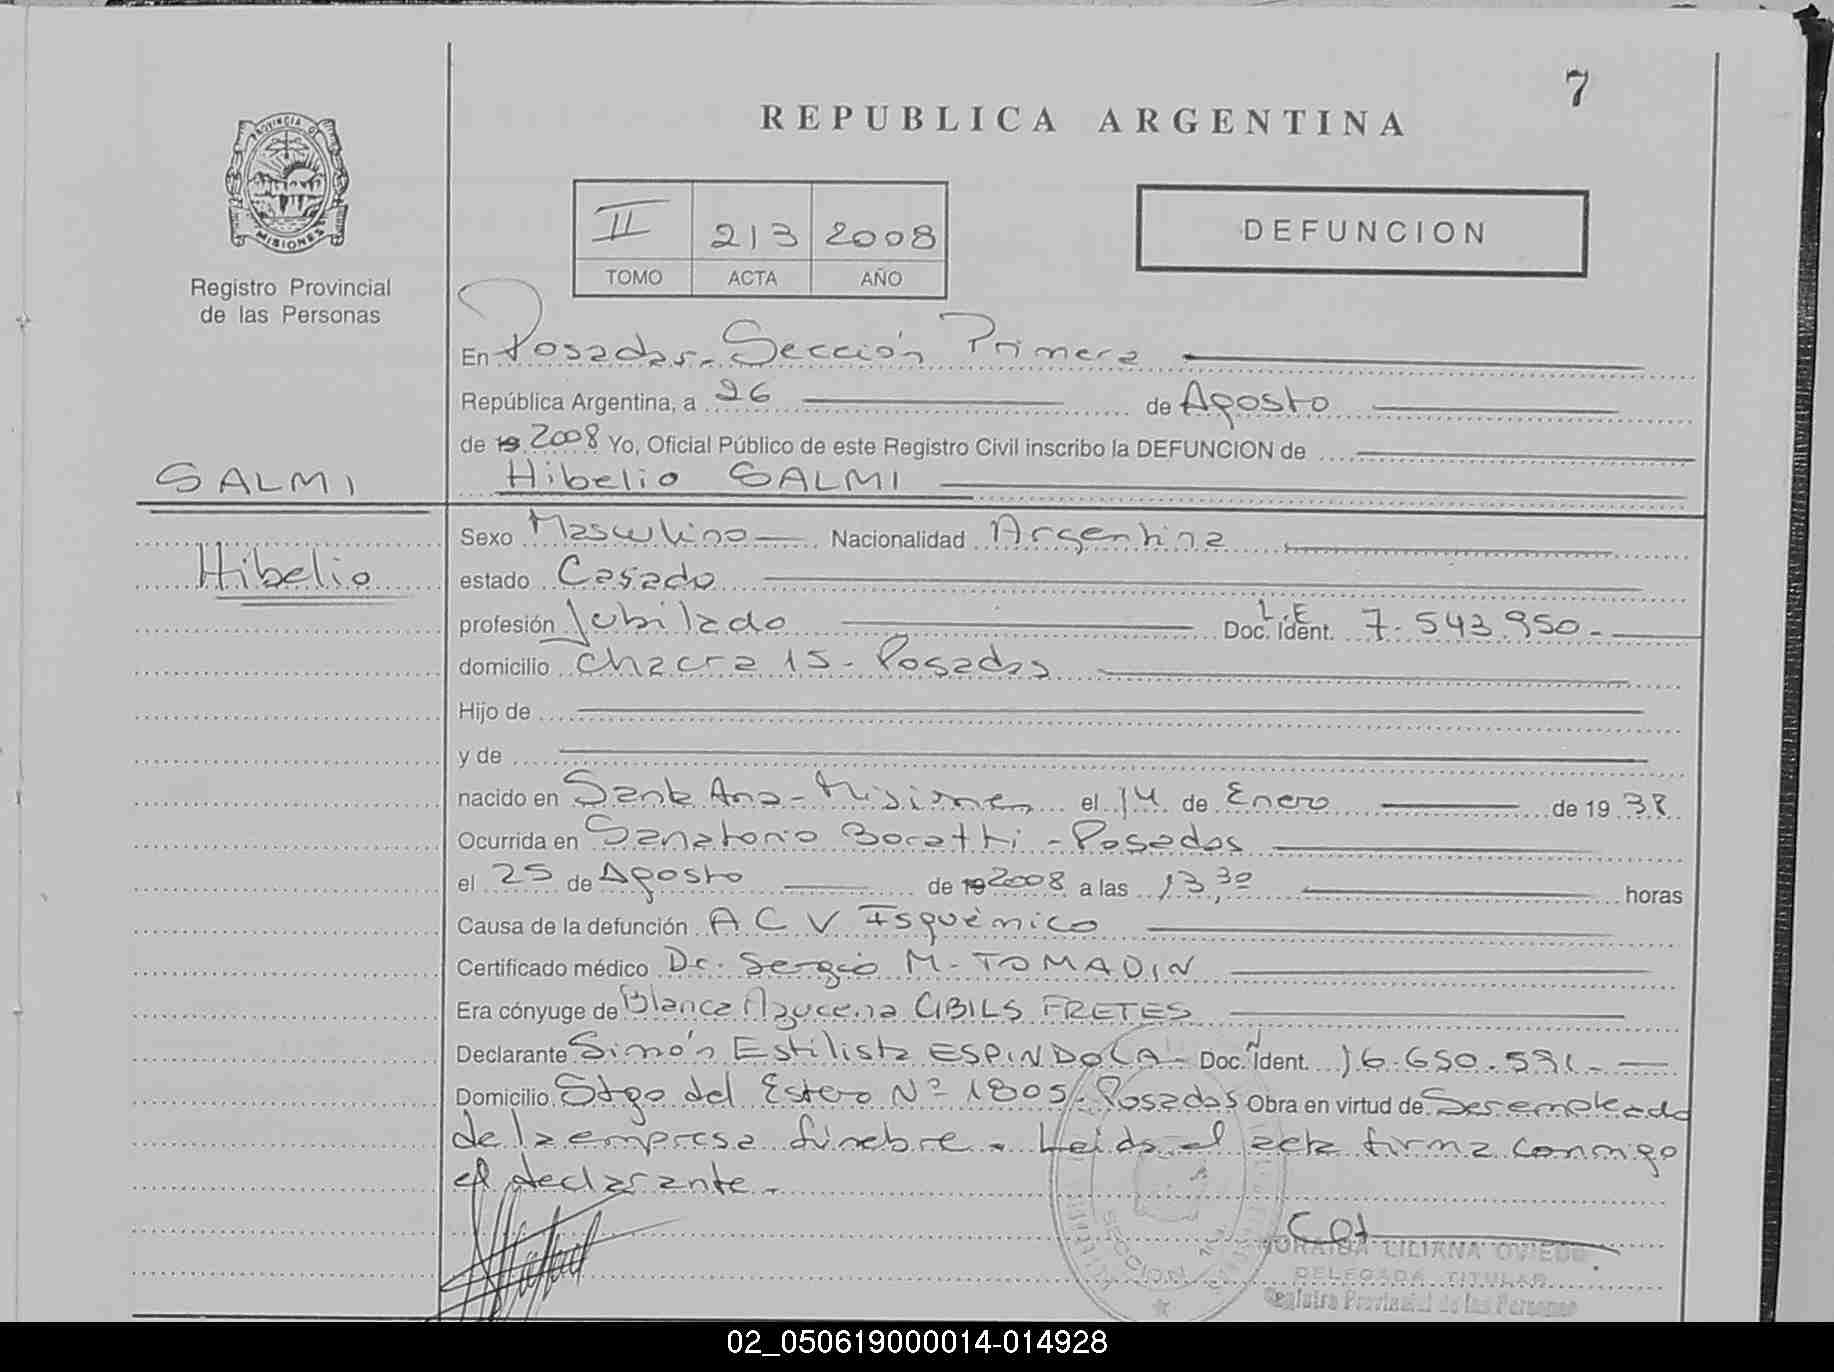 7
REPUBLICA ARGENTINA
PROVINCIA DE
MISIONES
Registro Provincial
de las Personas
II 213 2008
TOMO ACTA AÑO
DEFUNCION
En Posadas - Sección Primera
República Argentina, a 26 de Agosto
de 19 2008 Yo, Oficial Público de este Registro Civil inscribo la DEFUNCION de
SALMI
Hibelio SALMI
Hibelio
Sexo Masculino Nacionalidad Argentina
estado Casado
profesión Jubilado Doc. Ident. L.E 7.543.950.-
domicilio chacra 15 - Posadas
Hijo de
y de
nacido en Santa Ana - Misiones el 14 de Enero de 19 38
Ocurrida en Sanatorio Boratti - Posadas
el 25 de Agosto de 19 2008 a las 13,30 horas
Causa de la defunción A C V Isquémico
Certificado médico Dr. Sergio M. TOMADIN
Era cónyuge de Blanca Azucena CIBILS FRETES
Declarante Simón Estilista ESPINDOLA - Doc. Ident. 16.650.591.-
Domicilio Stgo del Estero Nº 1805 - Posadas Obra en virtud de Ser empleado
de la empresa fúnebre. Leida el acta firma conmigo
el declarante.
SECCION
LILIANA OVIEDO
DELEGADA TITULAR
Registro Provincial de las Personas
02_050619000014-014928